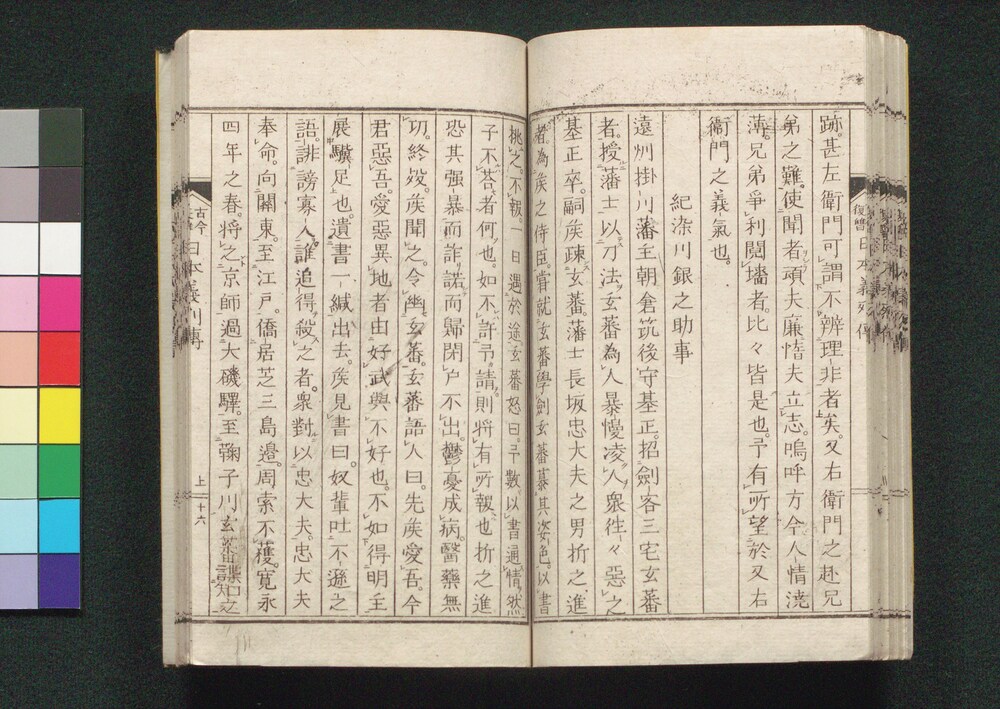 跡。甚左衛門可謂不辨理非者矣。又右衛門之赴兄
弟之難。使聞者頑夫廉惰夫立志。嗚呼方今人情澆
薄。兄弟爭利鬩墻者。比々皆是也。予有所望於又右
衛門之義氣也。
紀染川銀之助事
遠州掛川藩主朝倉筑後守基正。招劍客三宅玄蕃
者。授藩士以刀法。玄蕃為人暴慢凌人。衆徃々惡之。
基正卒。嗣矦疎玄蕃。藩士長坂忠大夫之男折之進
者。為矦之侍臣。嘗就玄蕃學劍。玄蕃慕其姿色。以書
桃之。不報。一日遇於途。玄蕃怒曰。予數以書通情。然
子不荅者何也。如不許予請。則將有所報也。折之進
恐其强暴而詐諾。而歸閉戸不出。鬱憂成病。醫藥無
功。終歿。矦聞之。令幽玄蕃。玄蕃語人曰。先矦愛吾。今
君惡吾。愛惡異地者由好武與不好也。不如得明主
展驥足也。遺書一緘出去。矦見書曰。奴輩吐不遜之
語。誹謗寡人。誰追得殺之者。衆對以忠大夫。忠大夫
奉命。向關東。至江戸。僑居芝三島邉。周索不獲。寛永
四年之春。將之京師過大磯驛。至鞠子川玄蕃諜知之
古今
日本義烈傳
上
二十六
復讐
日本義烈傳